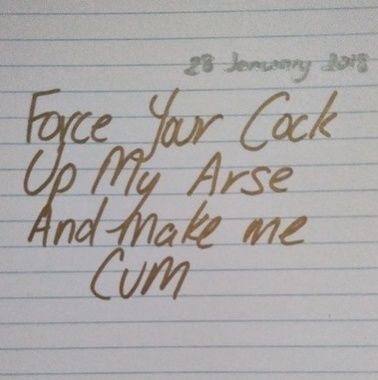 28 January 2018
Force Your Cock
Up My Arse
And Make me
Cum